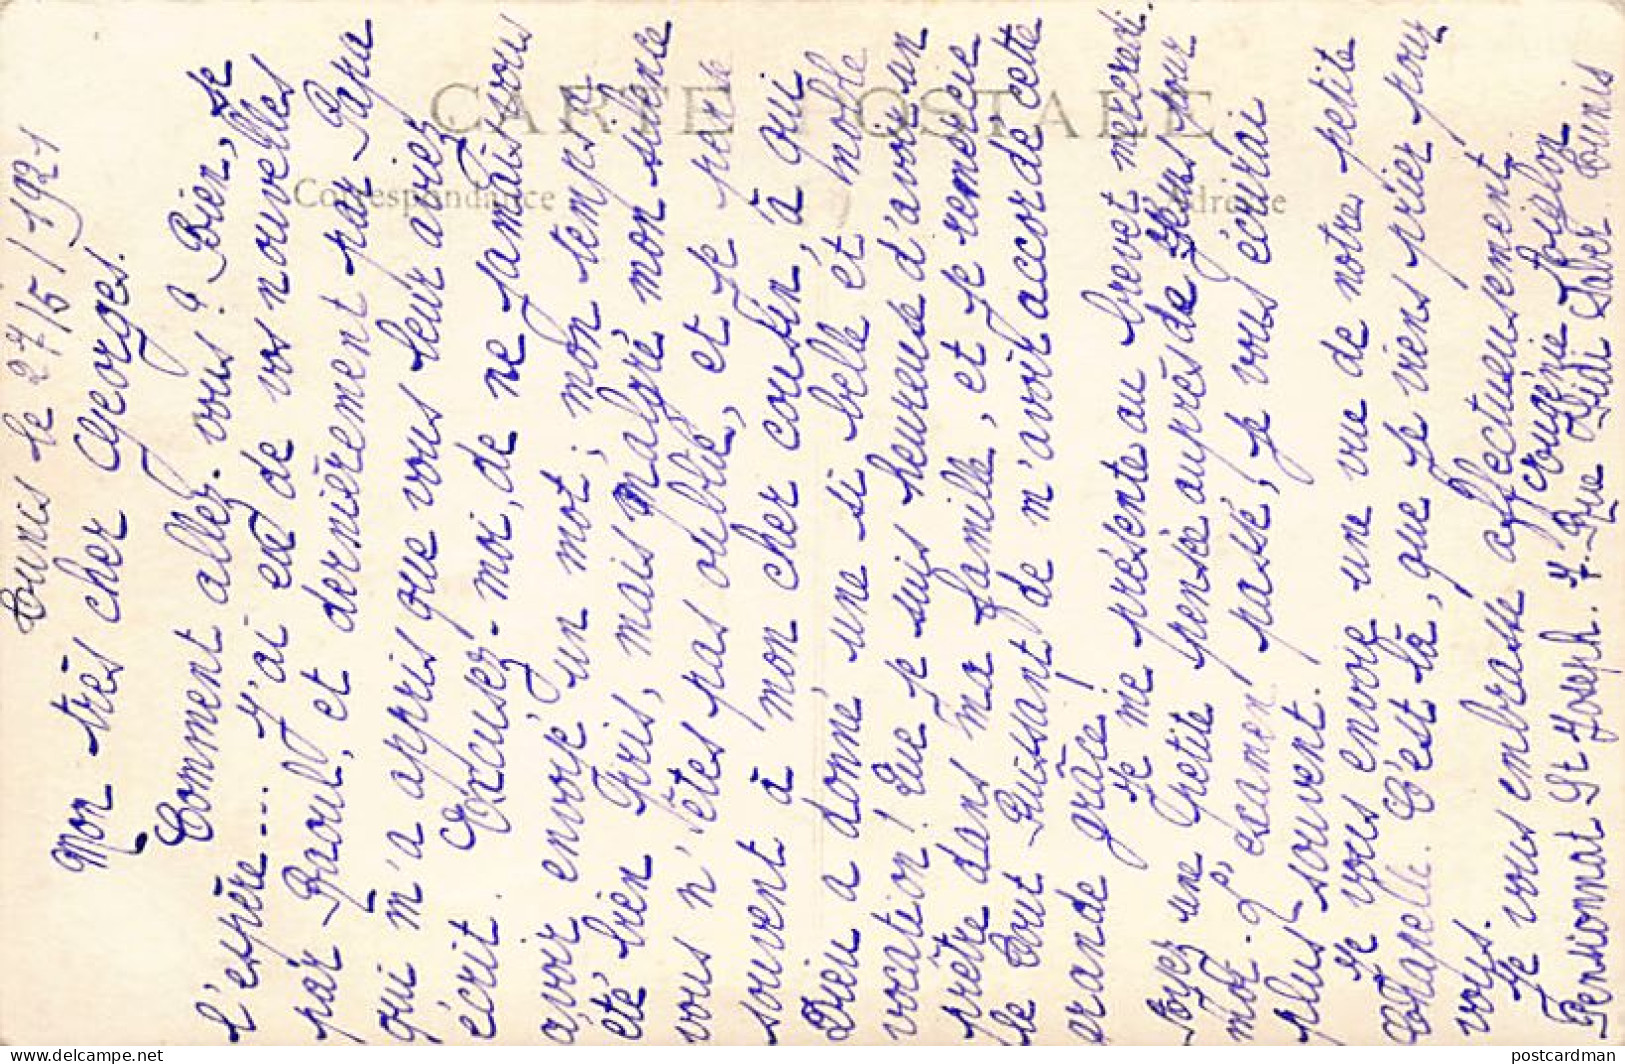 CARTE POSTALE
Correspondance
Adresse
Tunis le 27/5/1921
Mon très cher Georges.
Comment allez-vous? Bien, je
l'espère.... J'ai eu de vos nouvelles
par Raoul, et dernièrement par Papa
qui m'a appris que vous leur aviez
écrit. Excusez-moi, de ne jamais vous
avoir envoyé un mot; mon temps a
été bien pris, mais malgré mon silence
vous n'êtes pas oublié, et je pense
souvent à mon cher cousin, à qui
Dieu a donné une si belle et noble
vocation! Que je suis heureuse d'avoir un
prêtre dans ma famille, et je remercie
le Tout Puissant de m'avoir accordé cette
grande grâce!
Je me présente au brevet mercredi.
Soyez une petite pensée auprès de Jésus pour
moi. L'examen passé, je vous écrirai
plus souvent.
Je vous envoie une vue de notre petite
Chapelle. C'est là, que je viens prier pour
vous.
Je vous embrasse affectueusement.
Eugénie
Pensionnat St Joseph. 7. Rue Sidi Saber Tunis
postcardman